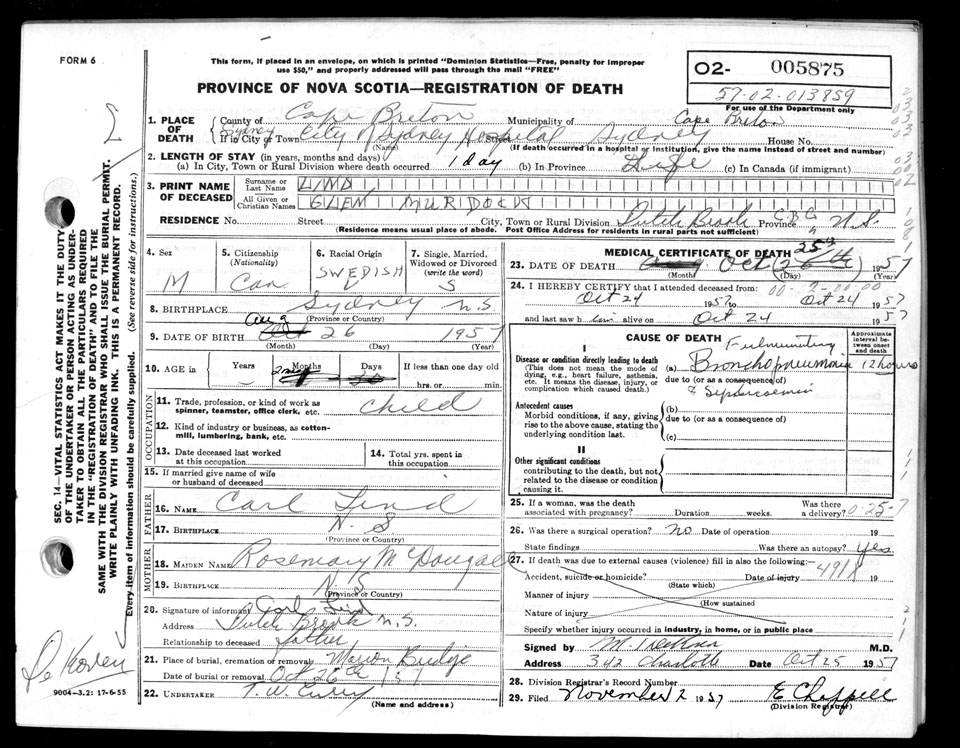 FORM 6
This form, if placed in an envelope, on which is printed "Dominion Statistics—Free, penalty for improper
use $50," and properly addressed will pass through the mail "FREE"
PROVINCE OF NOVA SCOTIA—REGISTRATION OF DEATH
O2- 005875
57-02-013859
For use of the Department only
1. PLACE OF DEATH
County of Cape Breton Municipality of Cape Breton
If in City or Town Sydney City Sydney Hospital Street Sydney House No.
(Name) (If death occurred in a hospital or institution, give the name instead of street and number)
2. LENGTH OF STAY (in years, months and days)
(a) In City, Town or Rural Division where death occurred 1 day (b) In Province Life (c) In Canada (if immigrant)
3. PRINT NAME OF DECEASED
Surname or Last Name LIND
All Given or Christian Names GLEN MURDOCK
RESIDENCE No. Street City, Town or Rural Division Dutch Brook C.B. Co Province N.S.
(Residence means usual place of abode. Post Office Address for residents in rural parts not sufficient)
4. Sex M
5. Citizenship (Nationality) Can
6. Racial Origin SWEDISH
7. Single, Married, Widowed or Divorced (write the word) S
8. BIRTHPLACE Sydney N.S.
(Province or Country)
9. DATE OF BIRTH Aug 26 1957
(Month) (Day) (Year)
10. AGE in Years Months Days If less than one day old
hrs. or min.
OCCUPATION
11. Trade, profession, or kind of work as spinner, teamster, office clerk, etc. Child
12. Kind of industry or business, as cotton-mill, lumbering, bank, etc.
13. Date deceased last worked at this occupation
14. Total yrs. spent in this occupation
15. If married give name of wife or husband of deceased
FATHER
16. NAME Carl Lind
17. BIRTHPLACE N.S.
(Province or Country)
MOTHER
18. MAIDEN NAME Rosemary McDougall
19. BIRTHPLACE N S
(Province or Country)
20. Signature of informant Carl Lind
Address Dutch Brook N.S.
Relationship to deceased father
21. Place of burial, cremation or removal Marion Bridge
Date of burial or removal Oct 26th 1957
22. UNDERTAKER T. W. Curry
(Name and Address)
9004-3.2: 17-6-55
MEDICAL CERTIFICATE OF DEATH
23. DATE OF DEATH Oct 25th 1957
(Month) (Day) (Year)
24. I HEREBY CERTIFY that I attended deceased from:
Oct 24 1957 to Oct 24 1957
and last saw him alive on Oct 24 1957
CAUSE OF DEATH
Approximate interval between onset and death
I
Disease or condition directly leading to death
(This does not mean the mode of dying, e.g., heart failure, asthenia, etc. It means the disease, injury, or complication which caused death.)
Fulminating
(a) Bronchopneumonia 12 hours
due to (or as a consequence of)
& Septicaemia
Antecedent causes
Morbid conditions, if any, giving rise to the above cause, stating the underlying condition last.
(b)
due to (or as a consequence of)
(c)
II
Other significant conditions
contributing to the death, but not related to the disease or condition causing it.
25. If a woman, was the death associated with pregnancy? Duration weeks. Was there a delivery?
26. Was there a surgical operation? no Date of operation 19
State findings Was there an autopsy? Yes
27. If death was due to external causes (violence) fill in also the following:—
Accident, suicide or homicide? Date of injury 19
(State which)
Manner of injury
(How sustained)
Nature of injury
Specify whether injury occurred in industry, in home, or in public place
Signed by M.D.
Address 342 Charlotte Date Oct 25 1957
28. Division Registrar's Record Number
29. Filed November 2 1957 E Chappell
(Division Registrar)
SEC. 14—VITAL STATISTICS ACT MAKES IT THE DUTY
OF THE UNDERTAKER OR PERSON ACTING AS UNDER-
TAKER TO OBTAIN ALL THE PARTICULARS REQUIRED
IN THE "REGISTRATION OF DEATH" AND TO FILE THE
SAME WITH THE DIVISION REGISTRAR WHO SHALL ISSUE THE BURIAL PERMIT.
WRITE PLAINLY WITH UNFADING INK. THIS IS A PERMANENT RECORD.
Every item of information should be carefully supplied. (See reverse side for instructions.)